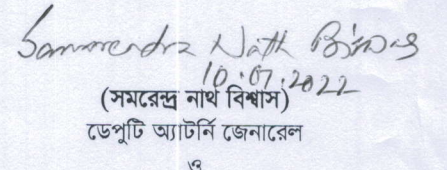 Samarendra Nath Biswas
10.07.2022
(সমরেন্দ্র নাথ বিশ্বাস)
ডেপুটি অ্যাটর্নি জেনারেল
ও